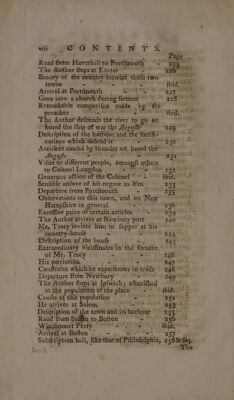 viii CONTENTS.
Page
Road from Haverhill to Portsmouth 225
The Author stops at Exeter 226
Beauty of the country betwixt these two
towns ibid.
Arrival at Portsmouth 227
Goes into a church during sermon 228
Remarkable comparison made by the
preacher ibid.
The Author descends the river to go on
board the ship of war the Auguste 229
Description of the harbour and the fortifi-
cations which defend it 230
Accident caused by thunder on board the
Auguste 231
Visits to different people, amongst others
to Colonel Langdon 232
Generous action of the Colonel ibid.
Sensible answer of his negroe to him 233
Departure from Portsmouth 235
Observations on this town, and on New
Hampshire in general 236
Excessive price of certain articles 239
The Author arrives at Newbury port 240
Mr. Tracy invites him to supper at his
country-house 241
Description of the house 242
Extraordinary vicissitudes in the fortune
of Mr. Tracy 246
His patriotism 247
Constraint which he experiences in trade 248
Departure from Newbury 249
The Author stops at Ipswich; astonished
at the population of the place ibid.
Causes of this population 251
He arrives at Salem 253
Description of the town and its harbour 255
Road from Salem to Boston 256
Winnisimet Ferry ibid.
Arrival at Boston 257
Subscription ball, like that of Philadelphia, 258 & seq.
The